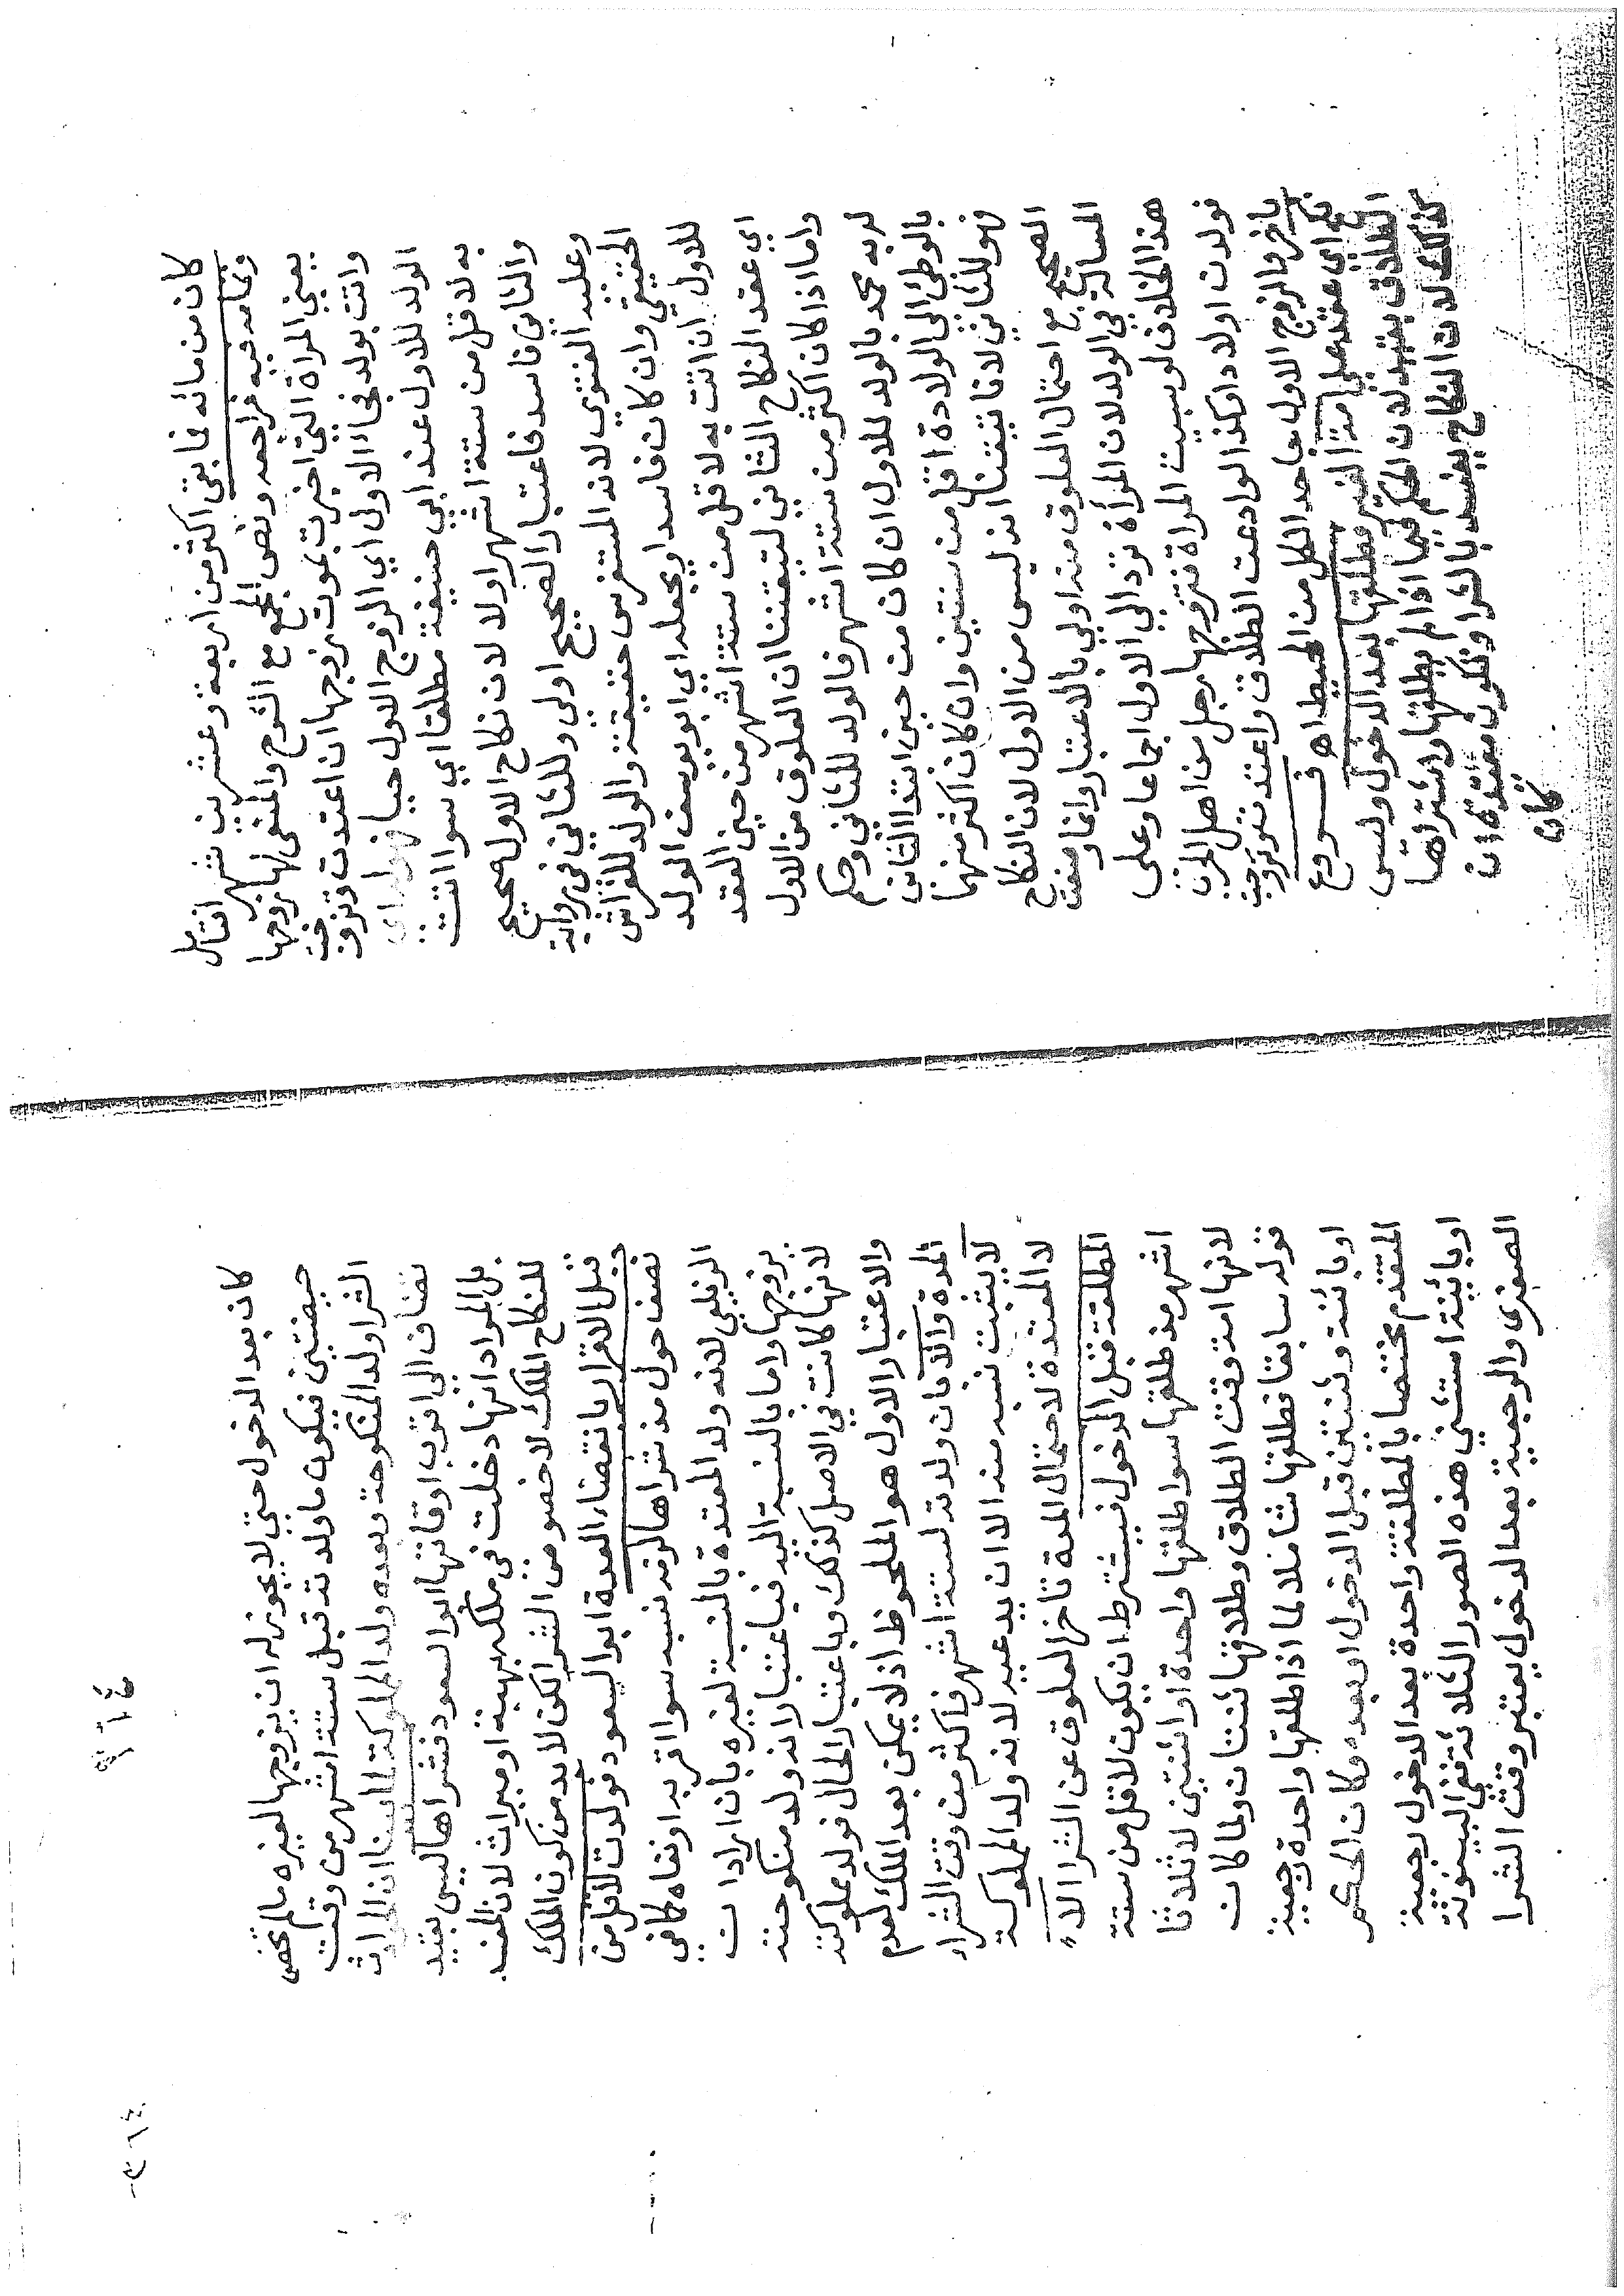 كان من مائه فما بقي اكثر من اربعة وعشرين شهرا فتامل
وتمامه فيه فراجعه ونص المجمع مع الشرح والمنعي لها زوجها
يعني المراة التي اخبرت بموت زوجها ان اعتدت وتزوجت
واتت بولد فجاء الاول اي الزوج الاول حيا فهو اي
الولد للاول عند ابي حنيفة مطلقا اي سوا اتت
به لاقل من ستة اشهر او لا لان نكاح الاول صحيح
والثاني فاسد فاعتبار الصحيح اولي وللثاني في رواية
وعليه الفتوي لانه المستفرش حقيقة والولد للفراش
الحقيقي وان كان فاسدا ويجعله اي ابو يوسف الولد
للاول ان اتت به لاقل من ستة اشهر من حين العقد
اي عقد النكاح الثاني لتيقننا ان العلوق من الاول
واما اذا كان اكثر من ستة اشهر فالولد للثاني وحكم
له به محمد بالولد للاول ان كان من حين ابتدا الثاني
بالوطئ الى الولادة اقل من سنتين وان كان اكثر منهما
فهو للثاني لانا تيقنا انه ليس من الاول لان النكاح
الصحيح مع احتمال العلوق منه اولي بالاعتبار وانما وضعت
المسالة في الولد لان المرأة ترد الي الاول اجماعا وعلى
هذا الخلاف لو سبيت المراة فتزوجها رجل من اهل الحرب
فولدت اولادا وكذا لو ادعت الطلاق واعتدت وتزوجت
باخر والزوج الاول جاحد الكل من المحيط اه فـــروع
نكح اي عقد علي امة الغير فطلقها بعد الدخول وليس
الطلاق بقيد لان الحكم فيما اذا لم يطلقها واشتراها
كذلك لان النكاح يفسد بالشرا وتكون معتدة ان
كان
١٦٤
كان بعد الدخول حتي لا يجوز له ان يزوجها لغيره ما لم تحض
حيضتين فيكون ما ولدته قبل ستة اشهر من وقت
الشرا ولد المنكوحة وبعده ولد المملوكة لما ان الحوادث
تضاف الي اقرب اوقاتها ابو السعود فشراها ليس بقيد
بل المراد انها دخلت في ملكه بهبة او ميراث لان المفسد
للنكاح الملك لا خصوص الشرا لكن لا بد من كون الملك
قبل الاقرار بانقضاء العدة ابو السعود فولدت لاقل من
نصف حول مذ شراها لزمه نسبه سوا اقر به او نفاه كما في
الزيلعي لانه ولد المعتدة بالنسبة لغيره بان اراد ان
يزوجها واما بالنسبة اليه فباعتبار انه ولد منكوحته
لانها كانت في الاصل كذلك وباعتبار الحال فولد مملوكته
والاعتبار الاول هو الملحوظ اذ لا يمكن بعد الملك لعدم
المدة والا بان ولدته لستة اشهر فاكثر من وقت الشراء
لا يثبت نسبه منه الا ان يدعيه لانه ولد المملوكة
لا المعتدة لاحتمال المدة تاخر العلوق عن الشرا الا
المطلقة قبل الدخول فيشترط ان يكون لاقل من ستة
اشهر مذ طلقها سوا طلقها واحدة او ثنتين لا ثلاثا
لانها امة وقت الطلاق وطلاقها ثنتان ولما كان
قوله سابقا فطلقها شاملا لما اذا طلقها واحدة رجعية
او بائنة وثنتين قبل الدخول او بعده وكان الحكم
المتقدم مختصا بالمطلقة واحدة بعد الدخول رجعية
او بائنة استثني هذه الصور الثلاثة ففي البينونة
الصغرى والرجعية بعد الدخول يعتبر وقت الشرا
١٦٤